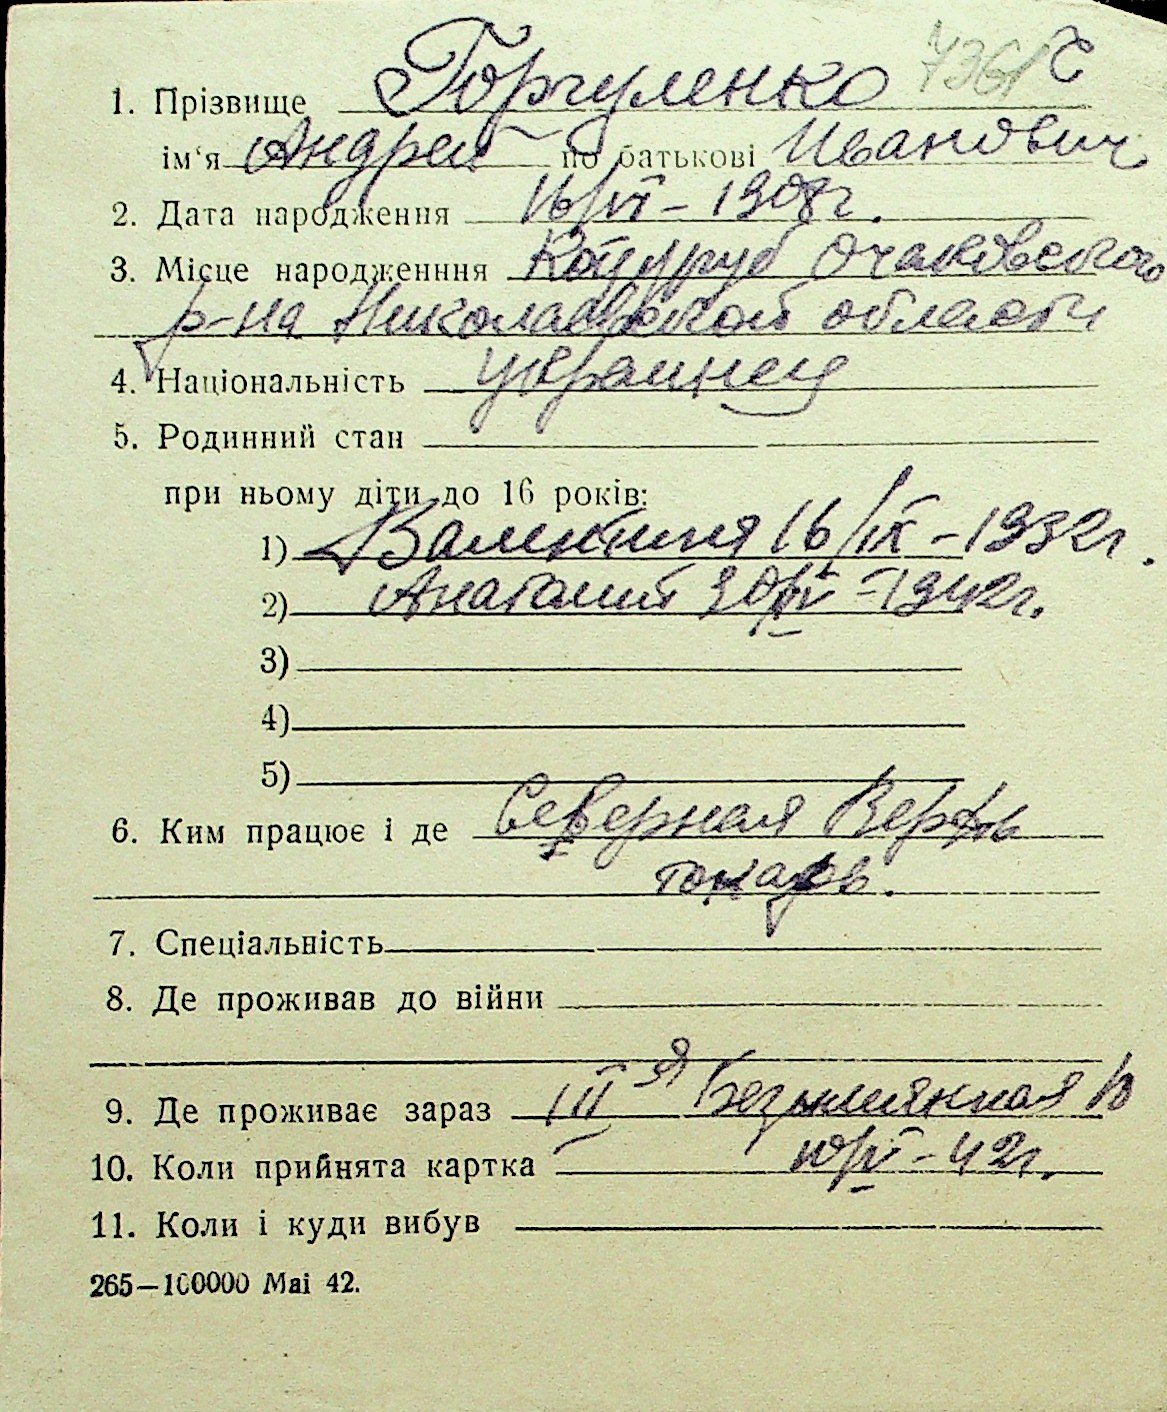 736/с
1. Прізвище Горгуленко
ім‘я Андрей по батькові Иванович
2. Дата народження 16/VI – 1908г.
3. Місце народженння Очаковского
р-на Николаевской области
4. Національність украинец
5. Родинний стан
при ньому діти до 16 років:
1) Валентина 16/IX – 1932г.
2) Анатолий – 1942г.
3)
4)
5)
6. Ким працює і де Северная Верфь
токарь.
7. Спеціальність
8. Де проживав до війни
9. Де проживає зараз III я Безымянная 10
10. Коли прийнята картка – 42г.
11. Коли і куди вибув
265—100000 Mai 42.